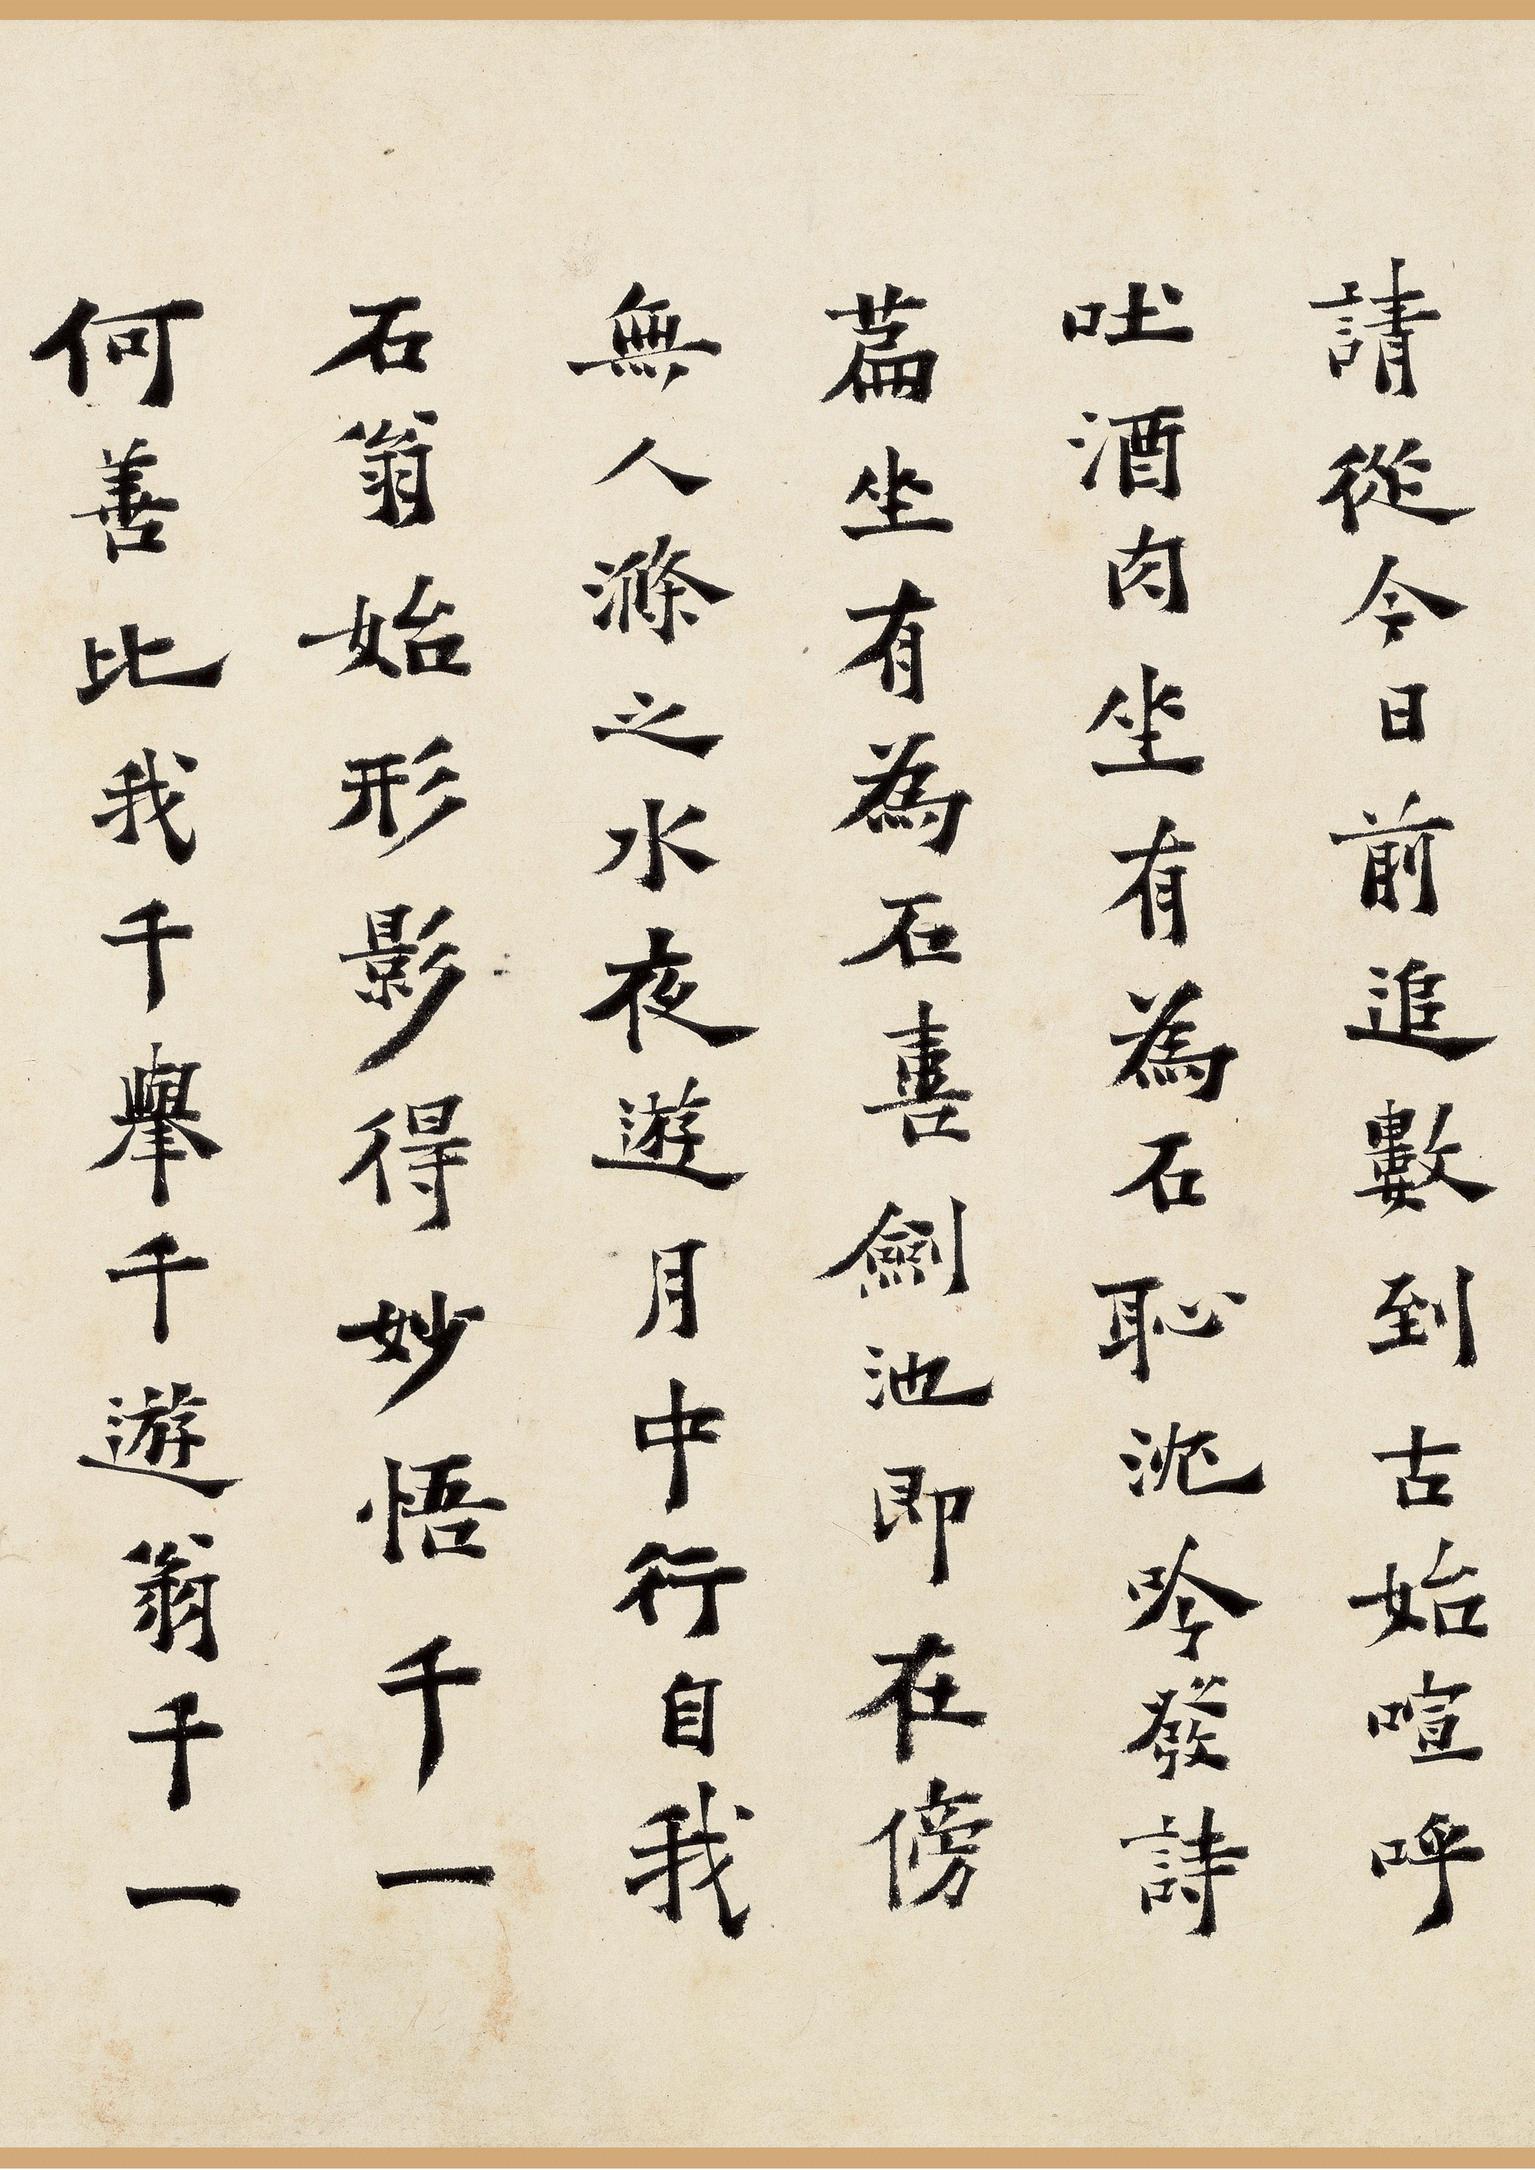 請從今日前追數到古始喧呼
吐酒肉坐有為石恥沉吟發詩
篇坐有為石喜劍池即在傍
無人滌之水夜遊月中行自我
石翁始形影得妙悟千一
何善比我千舉千遊翁千一